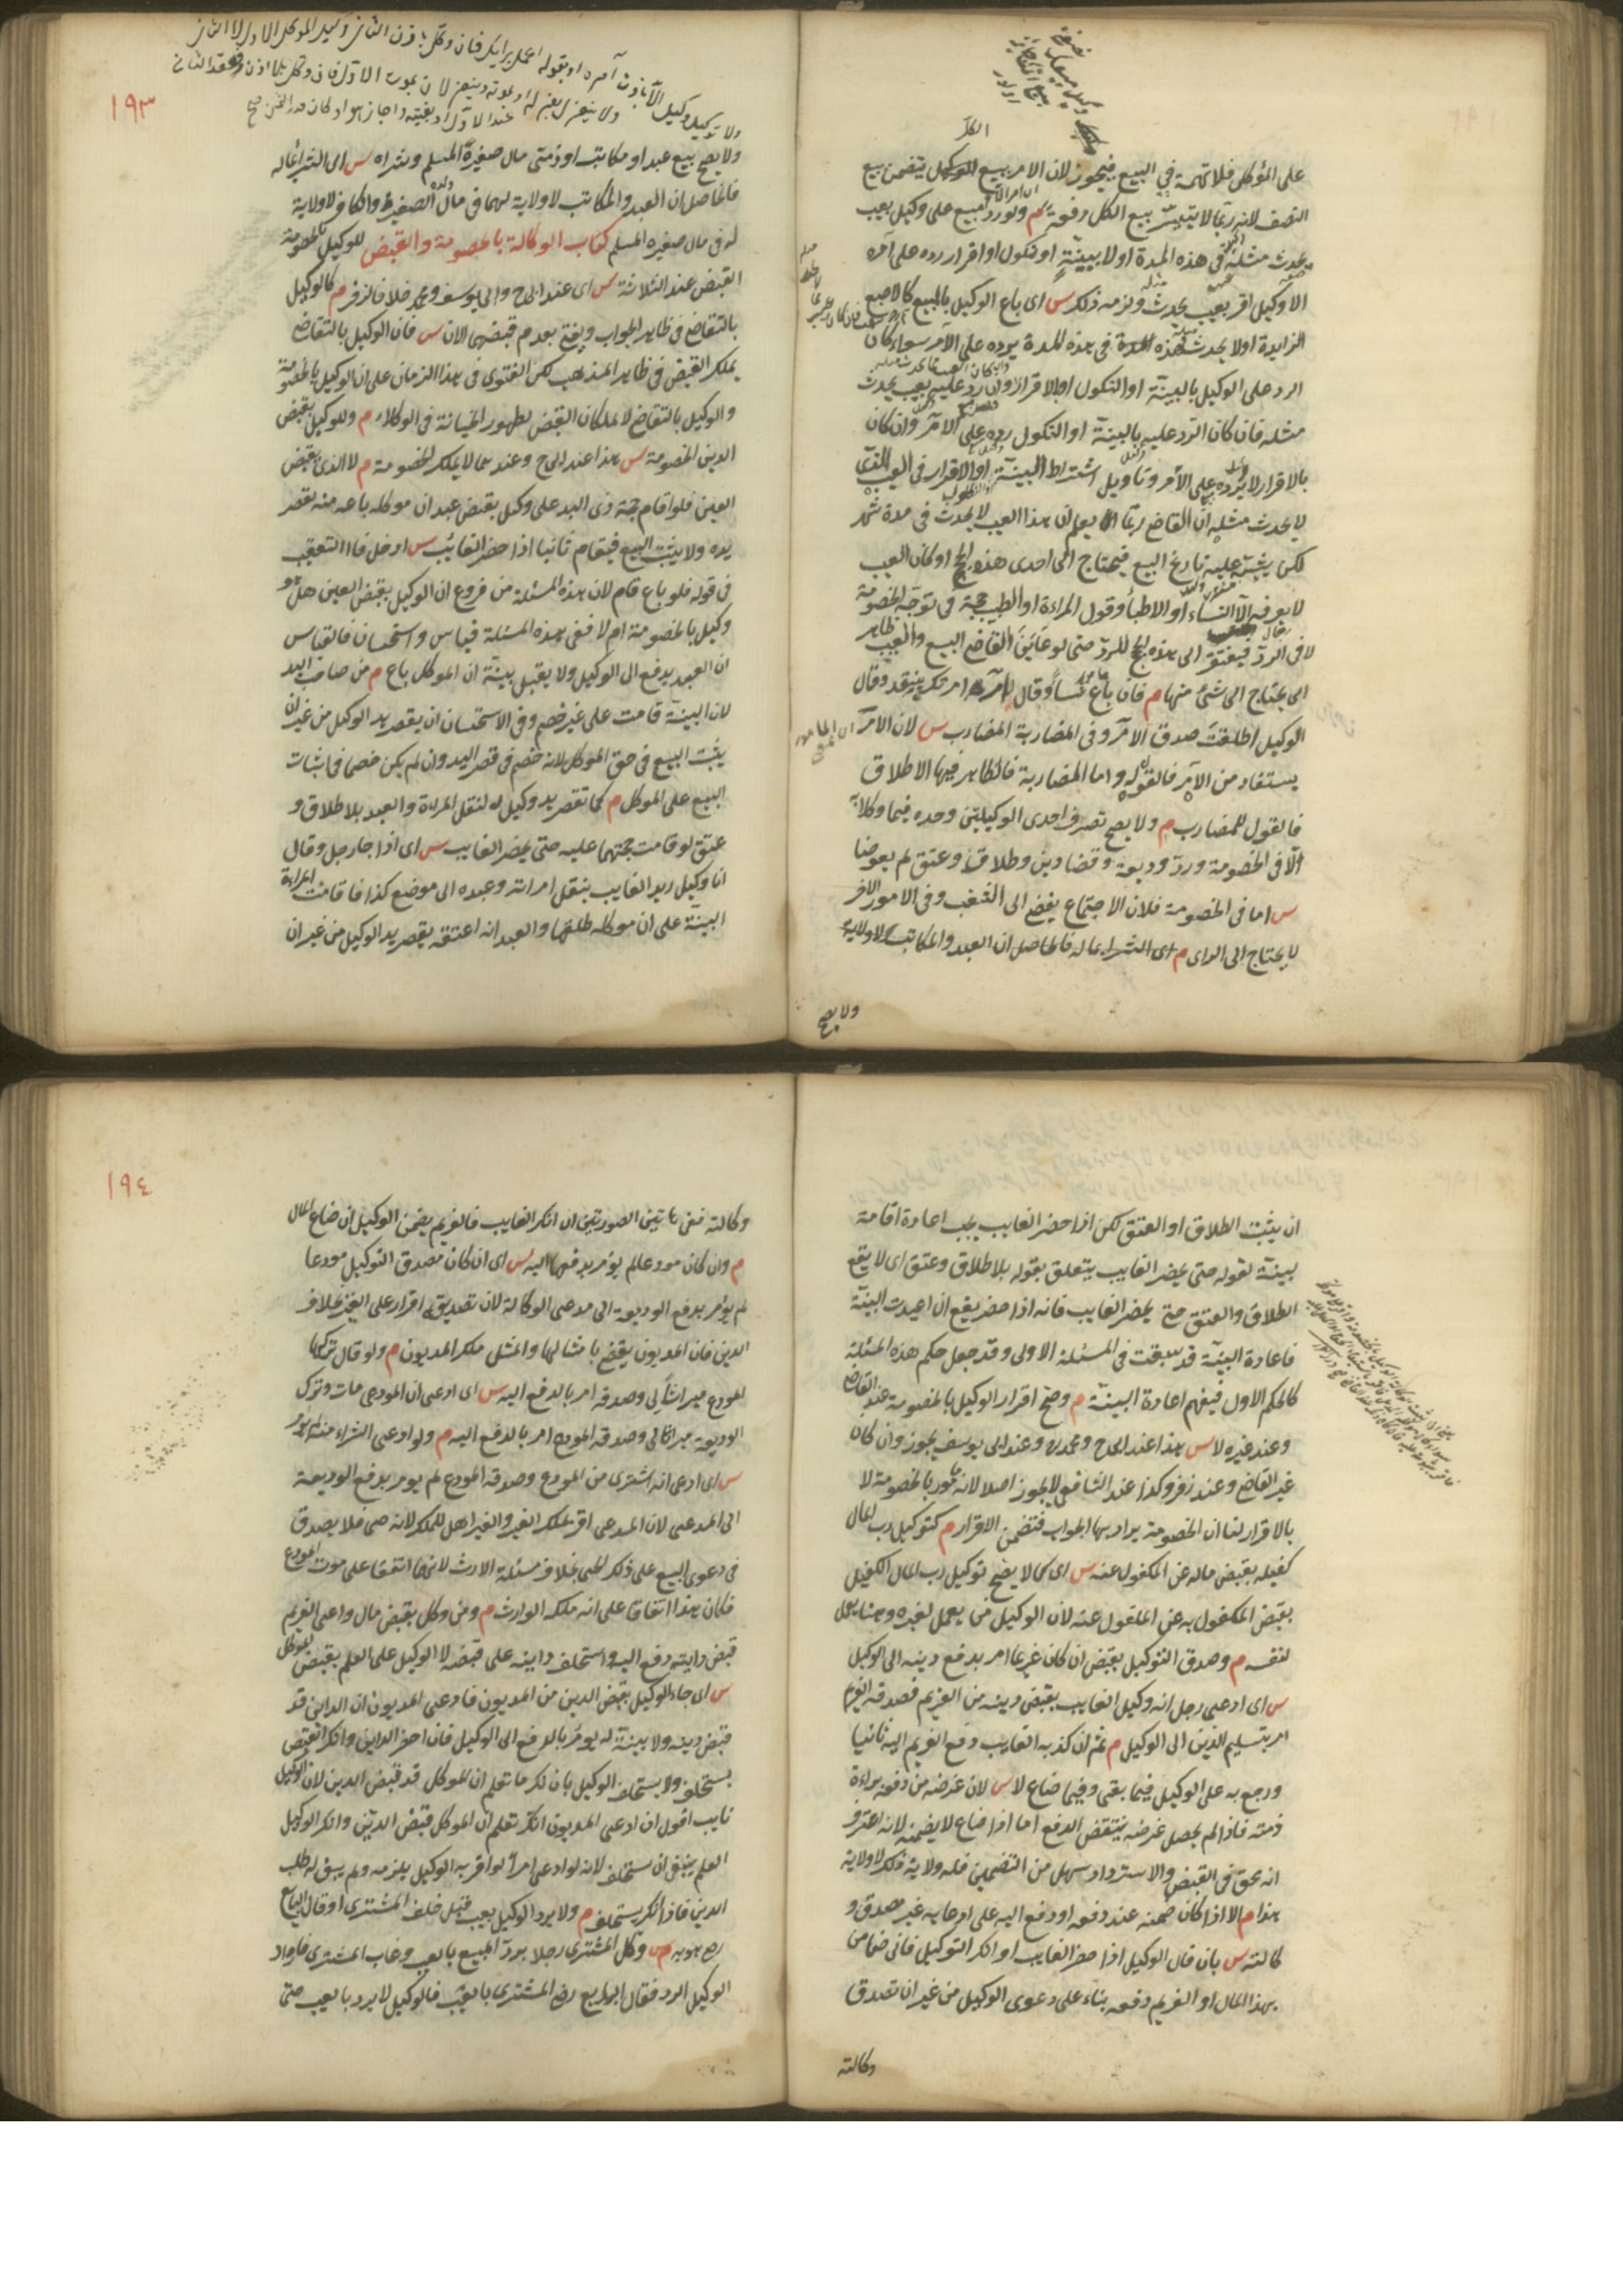 على المؤكل فلا تهمة في البيع فيجوز لان الامر ببيع الكل يتضمن بيع
النصف لانه ربما لا يتيسر بيع الكل دفعة م ولو رد مبيع على وكيل بعيب
يحدث مثله في هذه المدة او لا ببينة او نكول او اقرار رده على آمره
الا وكيل اقر بعيب يحدث مثله ولزمه ذلك س اى باع الوكيل بالبيع
الزايدة او لا يحدث مثله في هذه المدة يرده على الآمر سواء كان
الرد على الوكيل بالبينة او النكول او الاقرار وان رد عليه بعيب يحدث
مثله فان كان الرد عليه بالبينة او النكول رده على الآمر وان كان
بالاقرار لا يرده على الآمر وتاويل اشتراط البينة او الاقرار في العيب الذي
لا يحدث مثله ان القاضي ربما يعلم ان هذا العيب لا يحدث في مدة شهر
لكن يشتبه عليه تاريخ البيع فيحتاج الى احدى هذه الحجج او كان العيب
لا يعرفه الا النساء او الاطبأ وقول المراءة او الطبيب حجة في توجه الخصومة
لا في الرد فيفتقر الى هذه الحجج للرد حتى لو عاين القاضي البيع والعيب ظاهر
لا يحتاج الى شئ منها م فان باع نساء وقال آمره امرتك بنقد وقال
الوكيل اطلقت صدق الآمر وفي المضاربة المضارب س لان الامر
يستفاد من الآمر فالقول له واما المضاربة فالظاهر فيها الاطلاق
فالقول للمضارب م ولا يصح تصرف احدى الوكيلين وحده فيما وكلا به
الا في الخصومة ورد وديعة وقضا دين وطلاق وعتق لم يعوضا
س اما في الخصومة فلان الاجتماع يفضي الى الشغب وفي الامور الاخر
لا يحتاج الى الراى م اى الشرا بماله فالحاصل ان العبد والمكاتب لا ولاية
ولا يصح
١٩٣
ولا توكيل وكيل الا باذن آمره او بقوله اعمل برايك فان وكل باذن الثاني وكيل الموكل الاول لا الثاني
ولا ينعزل بعزله او موته وينعزلان بموت الاول فان وكل بلا اذن وعقد الثاني
عند الاول او بغيبته واجاز هو او كان قدر الثمن صح
ولا يصح بيع عبد او مكاتب او ذمتى مال صغيره المسلم وشراه س اى الشرا بماله
فالحاصل ان العبد والمكاتب لا ولاية لهما في مال ولده الصغير والكافر لا ولاية
له في مال صغيره المسلم كتاب الوكالة بالخصومة والقبض للوكيل بالخصومة
القبض عند الثلاثة س اى عند ابى ح وابى يوسف ومحمد خلافا لزفر م كالوكيل
بالتقاضي في ظاهر الجواب ويفتى بعدم قبضهما الان س فان الوكيل بالتقاضي
يملك القبض في ظاهر المذهب لكن الفتوى في هذا الزمان على ان الوكيل بالخصومة
والوكيل بالتقاضي لا يملكان القبض لظهور الخيانة في الوكلاء م وللوكيل بقبض
الدين الخصومة س هذا عند ابى ح وعندهما لا يملك الخصومة م لا الذى بقبض
العين فلو اقام حجة ذى اليد على وكيل بقبض عبد ان موكله باعه منه يقصر
يده ولا يثبت البيع فيقام ثانيا اذا حضر الغائب س ادخل فا التعقيب
في قوله فلو باع قام لان هذه المسئلة من فروع ان الوكيل بقبض العين هل هو
وكيل بالخصومة ام لا ففى هذه المسئلة قياس واستحسان فالقياس
ان العبد يدفع الى الوكيل ولا يقبل بينة ان الموكل باع م من صاحب اليد
لان البينة قامت على غير خصم وفي الاستحسان ان يقصر يد الوكيل من غير ان
يثبت البيع في حق الموكل لانه خصم في قصر اليد وان لم يكن خصما في اثبات
البيع على الموكل م كما تقصر يد وكيل له لنقل المراءة والعبد بلا طلاق و
عتق لو قامت حجتهما عليه حتى يحضر الغايب س اى اذا جا رجل وقال
انا وكيل زيد الغايب بنقل امراته وعبده الى موضع كذا فاقامت المراءة
البينة على ان موكله طلقها والعبد انه اعتقه يقصر يد الوكيل من غير ان
ان يثبت الطلاق او العتق لكن اذا حضر الغايب يجب اعادة اقامة
بينة لقوله حتى يحضر الغايب يتعلق بقوله بلا طلاق وعتق اى لا يقع
الطلاق والعتق حتى يحضر الغايب فانه اذا حضر يقع ان اعيدت البينة
فاعادة البينة قد سبقت في المسئلة الاولى وقد جعل حكم هذه المسئلة
كالحكم الاول فيفهم اعادة البينة م وصح اقرار الوكيل بالخصومة عند القاضي
وعند غيره لا س هذا عند ابى ح ومحمد وعند ابى يوسف يجوز وان كان
غير القاضي وعند زفر وكذا عند الشافعي لا يجوز اصلا لانه مامور بالخصومة لا
بالاقرار لنا ان الخصومة يراد بها الجواب فتضمن الاقرار م كتوكيل رب المال
كفيله بقبض ماله عن المكفول عنه س اى كما لا يصح توكيل رب المال الكفيل
بقبض المكفول به عن المكفول عنه لان الوكيل من يعمل لغيره وهنا يعمل
لنفسه م وصدق التوكيل بقبض ان كان غريما امر بدفع دينه الى الوكيل
س اى ادعى رجل انه وكيل الغايب بقبض دينه من الغريم فصدقه الغريم
امر بتسليم الدين الى الوكيل م ثم ان كذبه الغايب دفع الغريم اليه ثانيا
ورجع به على الوكيل فيما بقى وفيما ضاع لا س لان غرضه من دفعه براءة
ذمته فاذا لم يحصل غرضه ينتقض الدفع اما اذا ضاع لا يضمنه لانه اعترف
انه محق في القبض والاسترداد سهل من التضمين فله ولاية ذلك لا ولاية
هذا م الا اذا كان ضمنه عند دفعه او دفع اليه على ادعايه غير مصدق و
كالته س بان قال الوكيل اذا حضر الغايب او انكر التوكيل فانى ضامن
بهذا المال او الغريم دفعه بناء على دعوى الوكيل من غير ان تصدق
وكالته
١٩٤
وكالته ففى هاتين الصورتين ان انكر الغايب فالغريم يضمن الوكيل ان ضاع المال
م وان كان مودعا لم يؤمر بدفعها اليه س اى ان كان مصدق التوكيل مودعا
لم يؤمر بدفع الوديعة الى مدعى الوكالة لان تصديقه اقرار على الغير بخلاف
الدين فان المديون يقضى بامثالها والمثل ملك المديون م ولو قال تركها
المودع ميراثا لى وصدقه امر بالدفع اليه س اى ادعى ان المودع مات وترك
الوديعة ميراثا لى وصدقه المودع امر بالدفع اليه م ولو ادعى الشراء منه لم يومر
س اى ادعى انه اشترى من المودع وصدقه المودع لم يومر بدفع الوديعة
الى المدعى لان المدعى اقر بملك الغير والغير اهل للملك لانه حى فلا يصدق
في دعوى البيع على ذلك الحى بخلاف مسئلة الارث لانهما اتفقا على موت المودع
فكان هذا اتفاقا على انه ملك الوارث م ومن وكل بقبض مال وادعى الغريم
قبض داينه دفع اليه واستحلف داينه على قبضه لا الوكيل على العلم بقبض الموكل
س اى جاء الوكيل بقبض الدين من المديون فادعى المديون ان الداين قد
قبض دينه ولا بينة له يؤمر بالدفع الى الوكيل فان احضر الداين وانكر القبض
يستحلف ولا يستحلف الوكيل بان لك ما تعلم ان الموكل قد قبض الدين لان الوكيل
نايب اقول ان ادعى المديون انك تعلم ان الموكل قبض الدين وانكر الوكيل
العلم ينبغى ان يستحلف لانه لو ادعى امرا لو اقر به الوكيل يلزمه ولم يبق له طلب
الدين فاذا انكر يستحلف م ولا يرد الوكيل بعيب قبل حلف المشترى لو قال البايع
رضى هو به س وكل المشترى رجلا برد المبيع بالعيب وغاب المشترى فاراد
الوكيل الرد فقال البايع رضى المشترى بالعيب فالوكيل لا يرد بالعيب حتى